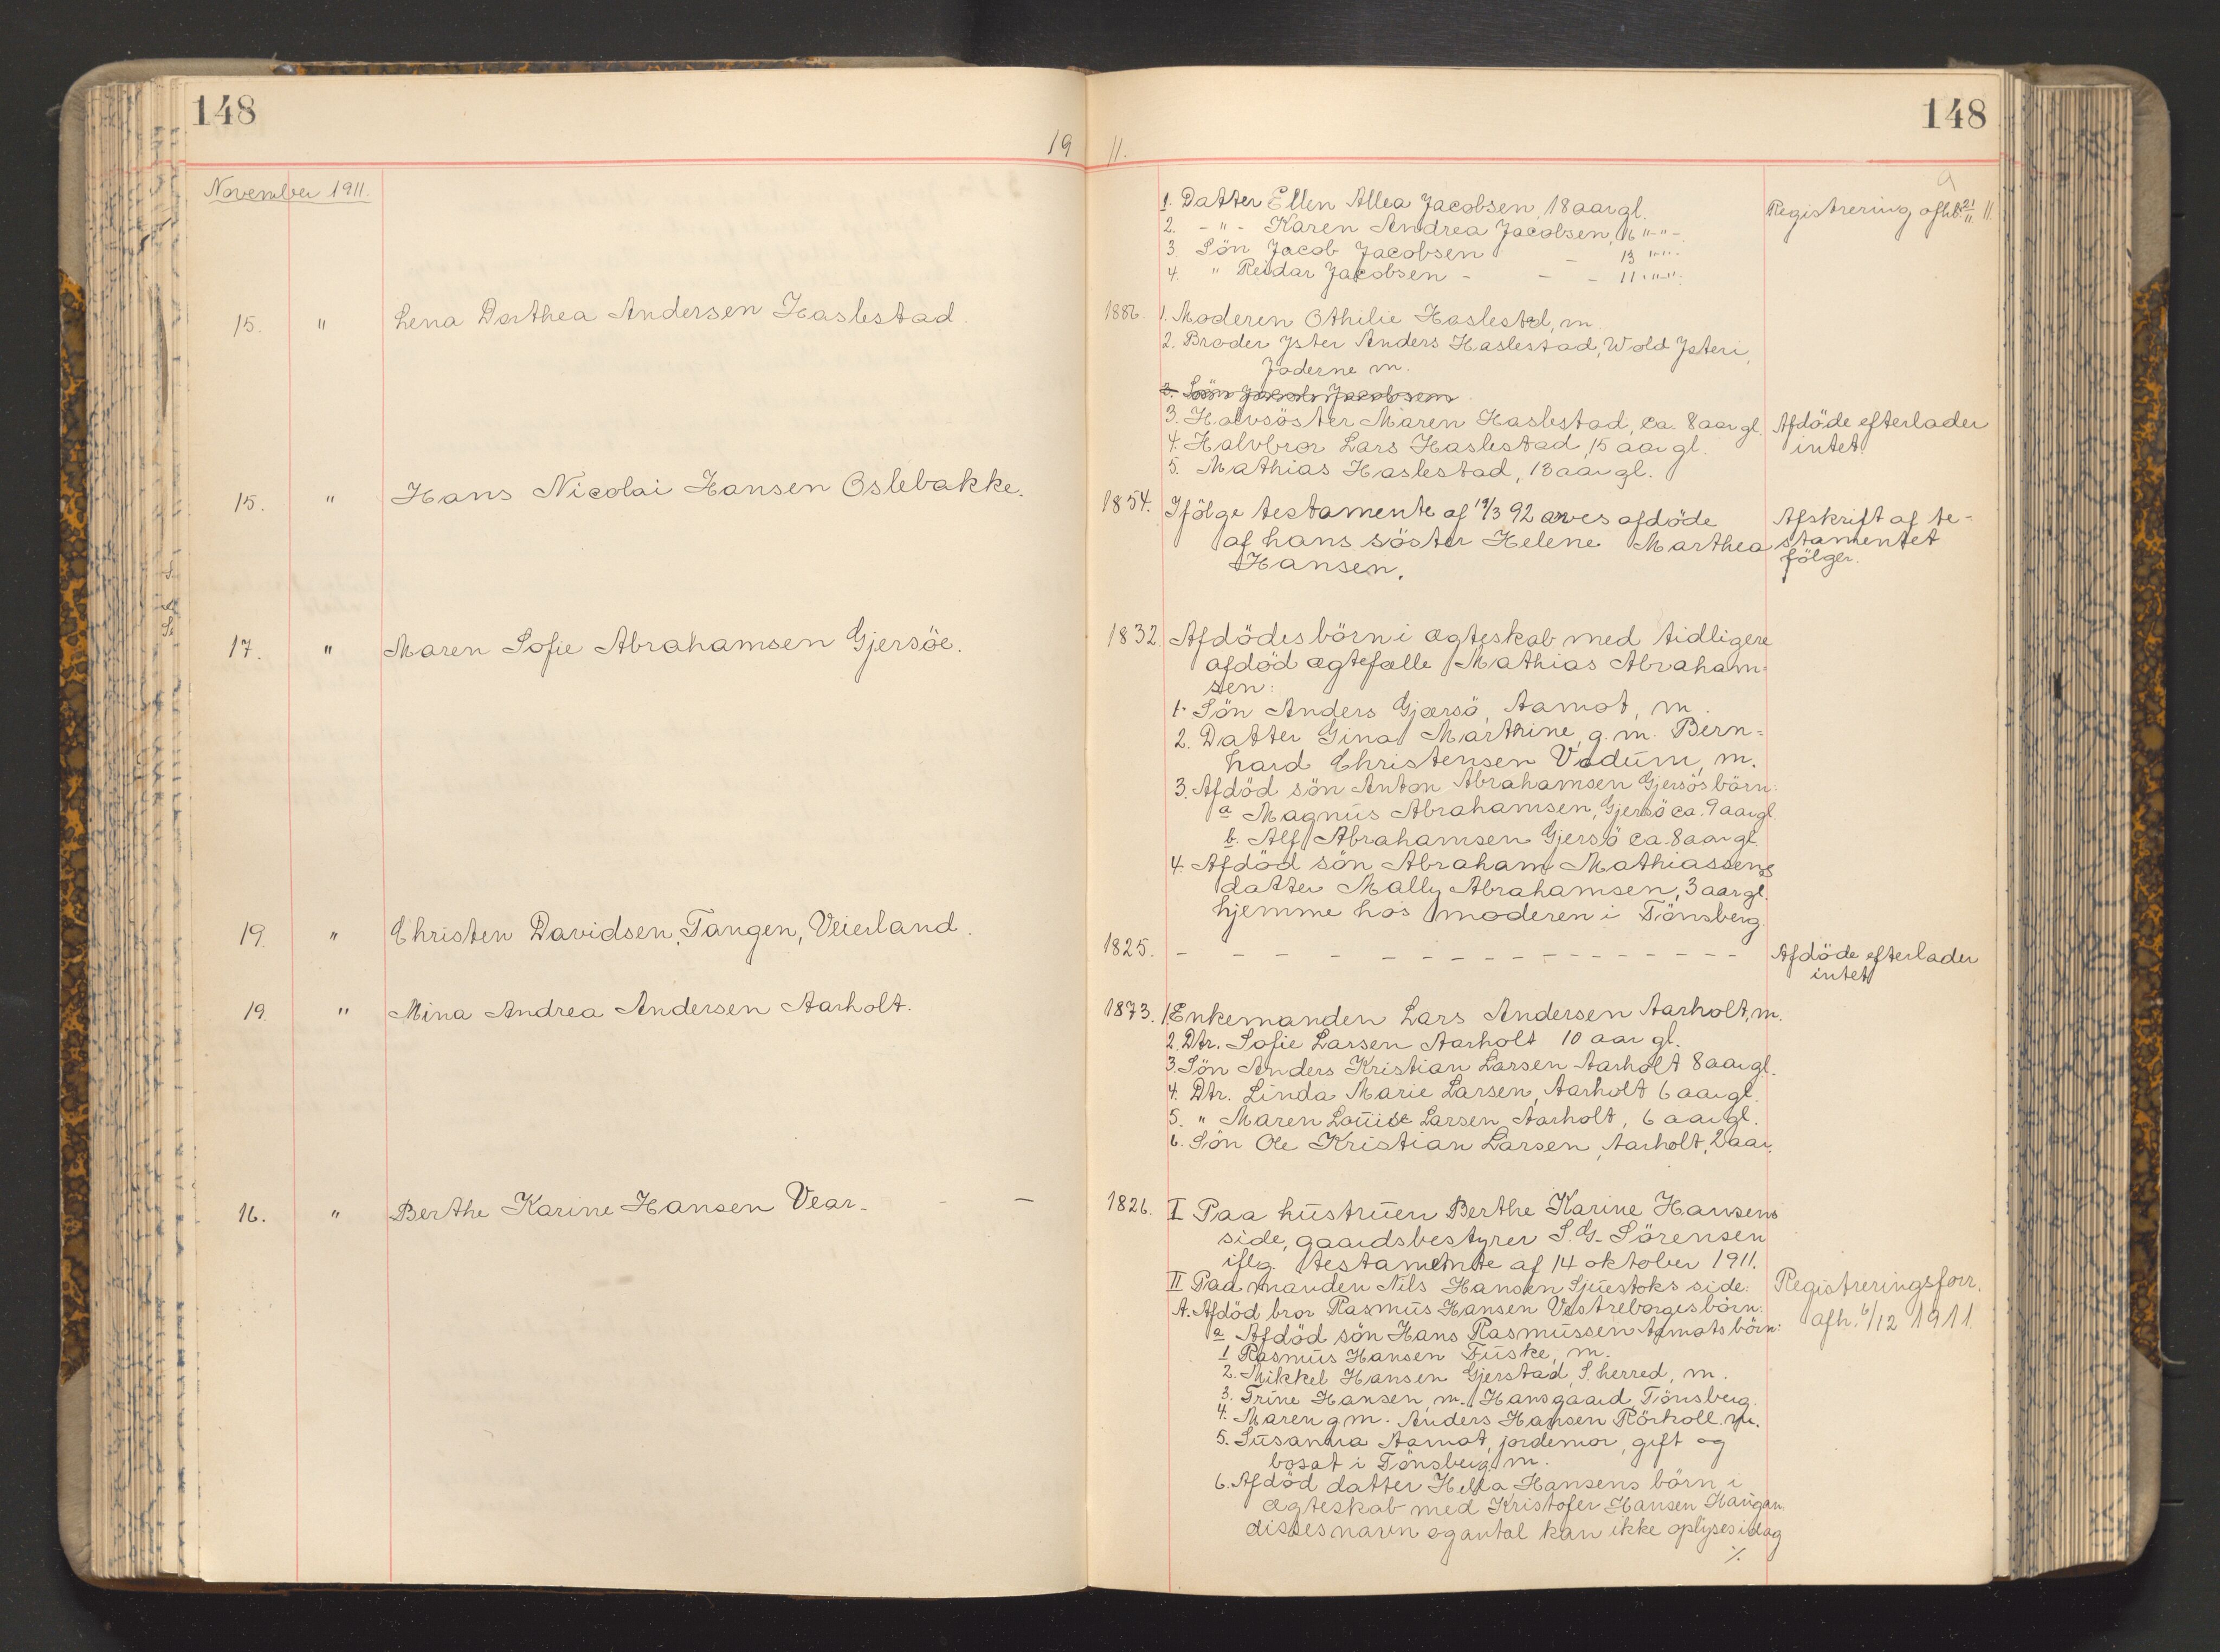 148
148
19 11.
November 1911.
1. Datter Ellen Allea Jacobsen, 18 aar gl.
Registrering afh. 21/11 11.
2. - " - Karen Andrea Jacobsen, 16 " - " -
3. Sön Jacob Jacobsen - 13 " - " -
4. " Reidar Jacobsen - - - 11 " - " -
15. " Lena Dorthea Andersen Haslestad.
1886. 1. Moderen Othilie Haslestad, m.
2. Broder Anders Haslestad, Wold
m.
3. Sön Jacob Jacobsen
3. Halvsöster Maren Haslestad, ca. 8 aar gl.
Afdöde efterlader
4. Halvbror Lars Haslestad, 15 aar gl.
intet.
5. Mathias Haslestad, 13 aar gl.
15. " Hans Nicolai Hansen Oslebakke.
1854. Ifölge testamente af 19/3 92 arves afdöde
Afskrift af te-
af hans söster Helene Marthea
stamentet
Hansen.
fölger.
17. " Maren Sofie Abrahamsen Gjersöe.
1832. Afdödes börn i ægteskab med tidligere
afdöd ægtefælle Mathias Abraham-
sen:
1. Sön Anders Gjersö, Aamot, m.
2. Datter Gina Marthine, g. m. Bern-
hard Christensen Vadum, m.
3. Afdöd sön Anton Abrahamsen Gjersös börn:
a Magnus Abrahamsen, Gjersö ca. 9 aar gl.
b. Alf Abrahamsen Gjersö ca. 8 aar gl.
4. Afdöd sön Abraham Mathiassens
datter Mally Abrahamsen, 3 aar gl.
hjemme hos moderen i Tönsberg.
19. " Christen Davidsen, Tangen, Veierland.
1825. - - - - - - - - - - - - - - - -
Afdöde efterlader
intet
19. " Mina Andrea Andersen Aarholt.
1873. 1. Enkemanden Lars Andersen Aarholt, m.
2. Dtr. Sofie Larsen Aarholt 10 aar gl.
3. Sön Anders Kristian Larsen Aarholt 8 aar gl.
4. Dtr. Linda Marie Larsen, Aarholt 6 aar gl.
5. " Maren Louise Larsen Aarholt, 6 aar gl.
6. Sön Ole Kristian Larsen, Aarholt, 2 aar.
16. " Berthe Karine Hansen Vear. - -
1826. I Paa hustruen Berthe Karine Hansens
side, gaardsbestyrer S. G. Sörensen
iflg. testamente af 14 oktober 1911.
II Paa manden Nils Hansen Sjuestoks side:
Registreringsforr.
A. Afdöd bror Rasmus Hansen Vestreborges börn:
afh. 6/12 1911.
a Afdöd sön Hans Rasmussen Aamots börn:
1 Rasmus Hansen Fuske, m.
2. Mikkel Hansen Gjerstad, S. herred, m.
3. Trine Hansen, m. Hansgaard, Tönsberg.
4. Maren g. m. Anders Hansen Rörkoll. m.
5. Susanna Aamot, jordemor, gift og
bosat i Tönsberg. m.
6. Afdöd datter Helka Hansens börn i
ægteskab med Kristofer Hansen Haugan.
disses navn og antal kan ikke oplyses idag
./.